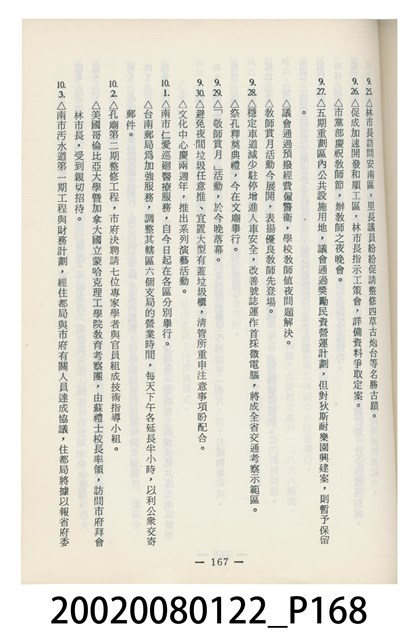 9.25△林市長訪問安南區，里長議員紛紛促請整修四草古炮台等名勝古蹟。
9.26△促成加速開發和順工區，林市長指示工策會，詳備資料爭取定案。
△市黨部慶祝教師節，辦教師之夜晚會。
9.27△五期重劃區內公共設施用地，議會通過獎勵民資營運計劃，但對狄斯耐樂園興建案，則暫予保留
△議會通過預撥經費僱警衛，學校教師值夜問題解決。
△教師賞月活動今展開，表揚優良教師先登場。
9.28△穩定車道減少駐停增進人車安全，改善號誌運作首採微電腦，將成全省交通考察示範區。
△祭孔釋奠典禮，今在文廟舉行。
9.29△「敬師賞月」活動，於今晚落幕。
9.30△避免夜間垃圾任意推、宜置大型有蓋垃圾櫃，清管所重申注意事項盼配合。
△文化中心慶兩週年，推出系列演藝活動。
10.1△南市仁愛巡廻醫療服務，自今日起在各區分別舉行。
△台南郵局爲加強服務，調整其轄區六個支局的營業時間，每天下午各延長半小時，以利公衆交寄
郵件。
10.2△孔廟第二期整修工程，市府決聘請七位專家學者與官員組成技術指導小組。
△美國哥倫比亞大學暨加拿大國立蒙哈克理工學院教育考察團，由蘇禮士校長率領，訪問市府拜會
林市長，受到親切招待。
10.3△南市汚水道第一期工程與財務計劃，經住都局與市府有關人員達成協議，住都局將據以報省府委
— 167 —
20020080122_P168